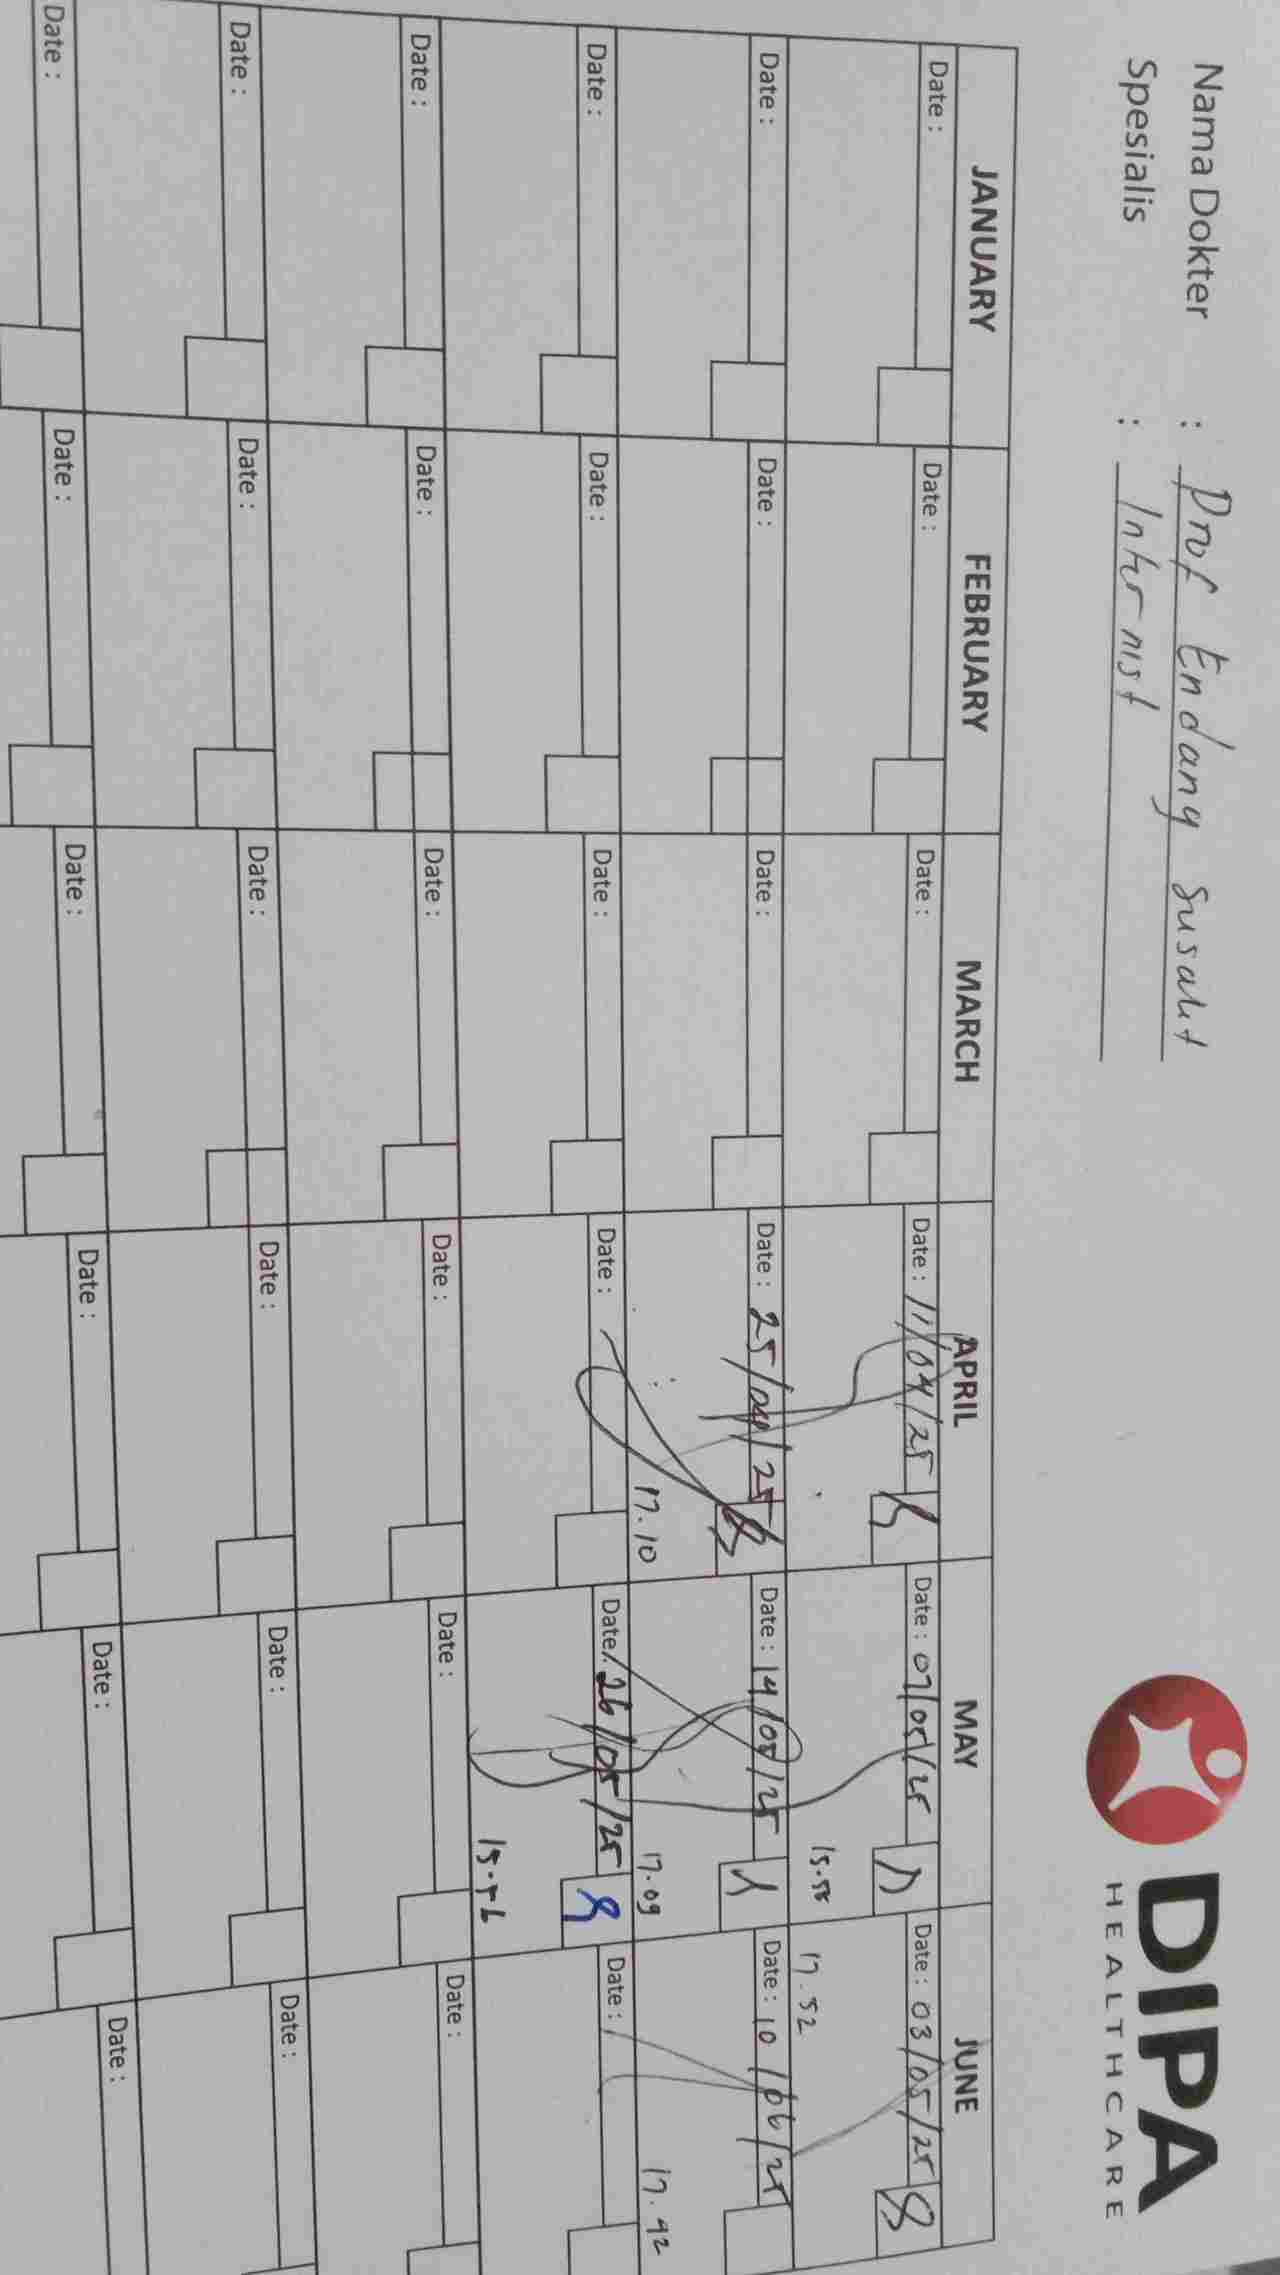 DIPA
HEALTHCARE
Nama Dokter : Prof Endang Susalit
Spesialis : Internist
JANUARY FEBRUARY MARCH APRIL MAY JUNE
Date : Date : Date : Date : 11/04/25 Date : 07/05/25 Date : 03/05/25
15.58 17.52
Date : Date : Date : Date : 25/04/25 Date : 14/05/25 Date : 10/06/25
17.10 17.09 17.42
Date : Date : Date : Date : Date : 26/05/25 Date :
Date : Date : Date : Date : Date : Date :
Date : Date : Date : Date : Date : Date :
Date : Date : Date : Date : Date : Date :